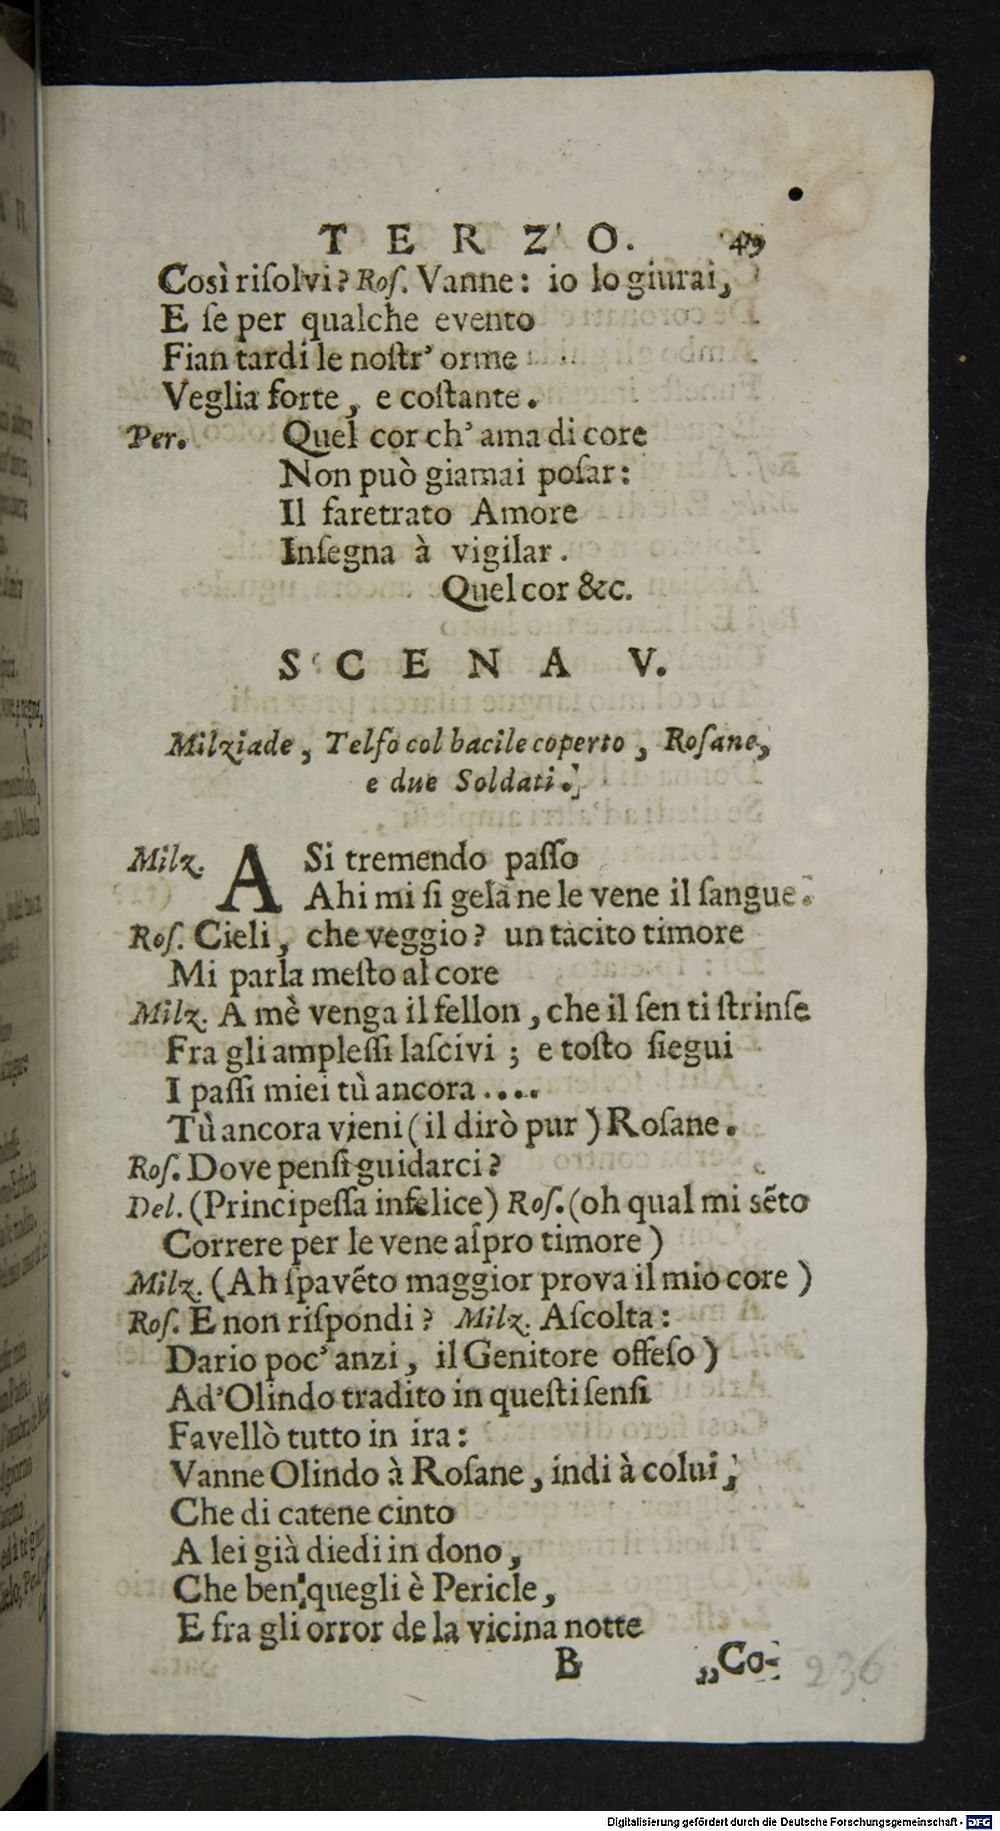 TERZO. 49
Così riſolvi? Roſ. Vanne: io lo giurai,
E ſe per qualche evento
Fian tardi le noſtr' orme
Veglia forte, e coſtante.
Per. Quel cor ch' ama di core
Non può giamai poſar:
Il faretrato Amore
Inſegna à vigilar.
Quel cor &c.
SCENA V.
Milziade, Telfo col bacile coperto, Roſane,
e due Soldati.
Milz. A Si tremendo paſſo
Ahi mi ſi gela ne le vene il ſangue.
Roſ. Cieli, che veggio? un tàcito timore
Mi parla meſto al core
Milz. A mè venga il fellon, che il ſen ti ſtrinſe
Fra gli ampleſſi laſcivi; e toſto ſiegui
I paſſi miei tù ancora....
Tù ancora vieni (il dirò pur) Roſane.
Roſ. Dove penſi guidarci?
Del. (Principeſſa infelice) Roſ. (oh qual mi sẽto
Correre per le vene aſpro timore)
Milz. (Ah ſpavẽto maggior prova il mio core)
Roſ. E non riſpondi? Milz. Aſcolta:
Dario poc' anzi, il Genitore offeſo)
Ad' Olindo tradito in queſti ſenſi
Favellò tutto in ira:
Vanne Olindo à Roſane, indi à colui,
Che di catene cinto
A lei già diedi in dono,
Che ben quegli è Pericle,
E fra gli orror de la vicina notte
B „Co-
236
Digitalisierung gefördert durch die Deutsche Forschungsgemeinschaft - DFG